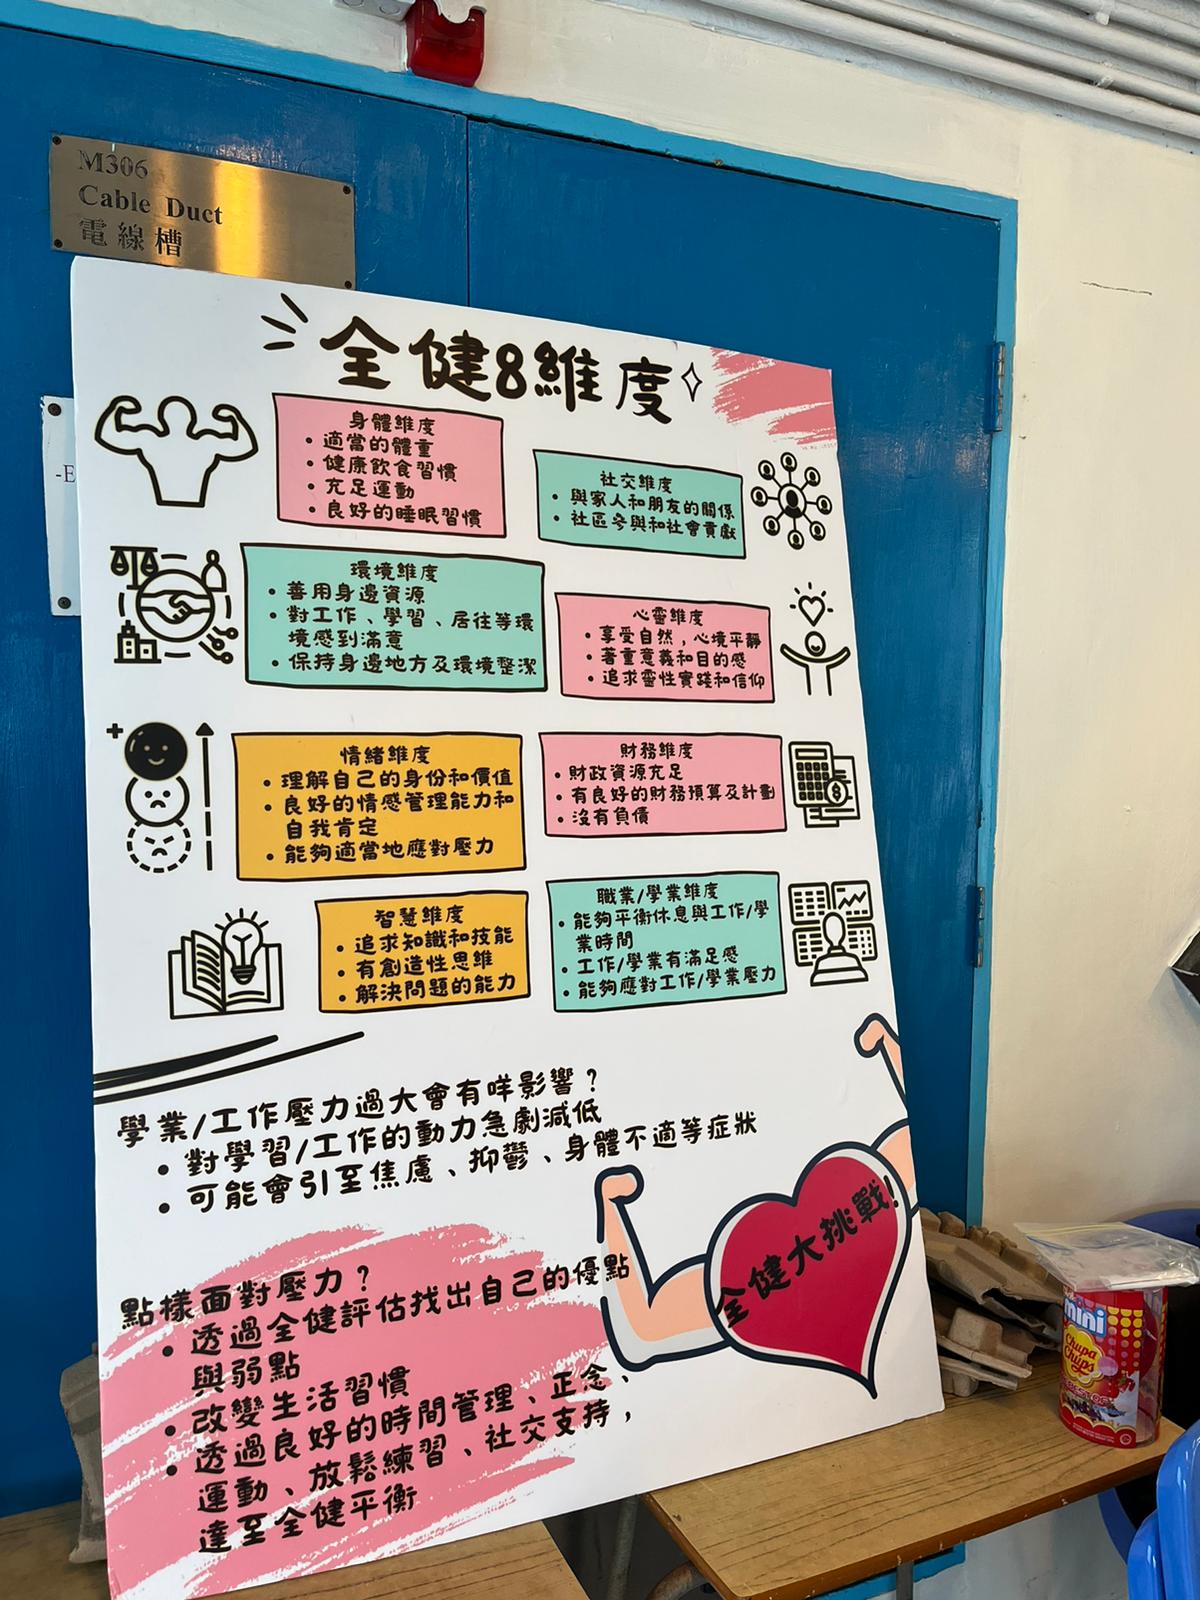 M306
Cable Duct
電線槽
-E
全健8維度
身體維度
• 適當的體重
• 健康飲食習慣
• 充足運動
• 良好的睡眠習慣
社交維度
• 與家人和朋友的關係
• 社區參與和社會貢獻
環境維度
• 善用身邊資源
• 對工作、學習、居住等環
境感到滿意
• 保持身邊地方及環境整潔
心靈維度
• 享受自然，心境平靜
• 著重意義和目的感
• 追求靈性實踐和信仰
情緒維度
• 理解自己的身份和價值
• 良好的情感管理能力和
自我肯定
• 能夠適當地應對壓力
財務維度
• 財政資源充足
• 有良好的財務預算及計劃
• 沒有負債
智慧維度
• 追求知識和技能
• 有創造性思維
• 解決問題的能力
職業/學業維度
• 能夠平衡休息與工作/學
業時間
• 工作/學業有滿足感
• 能夠應對工作/學業壓力
學業/工作壓力過大會有咩影響？
• 對學習/工作的動力急劇減低
• 可能會引至焦慮、抑鬱、身體不適等症狀
全健大挑戰!
點樣面對壓力？
• 透過全健評估找出自己的優點
與弱點
• 改變生活習慣
• 透過良好的時間管理、正念、
運動、放鬆練習、社交支持，
達至全健平衡
mini
Chupa
Chups